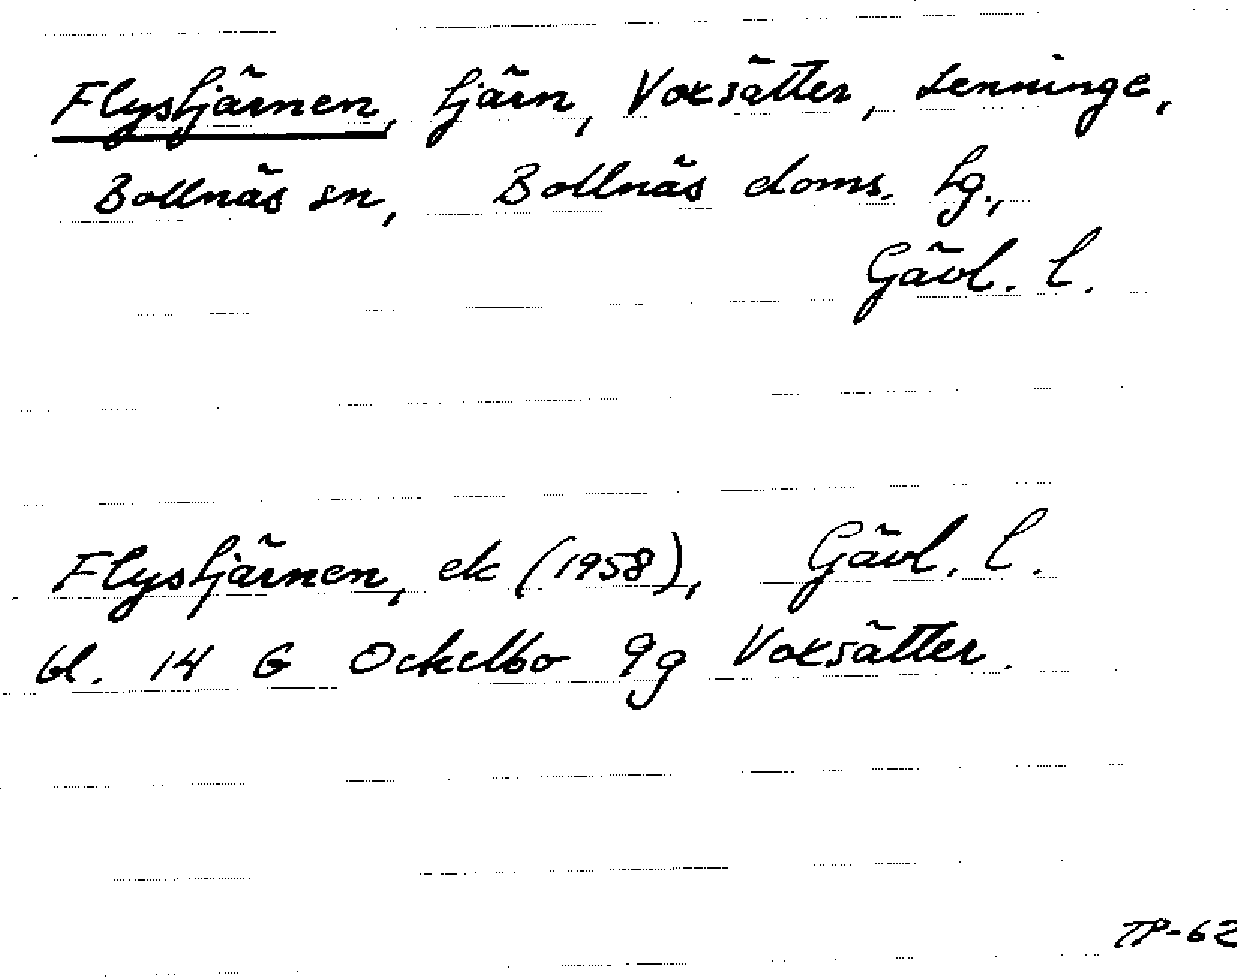 Flystjärnen, tjärn, Voxsätter, Lenninge,
Bollnäs sn, Bollnäs doms. tg.,
Gävl. l.
Flystjärnen, ek (1958), Gävl. l.
bl. 14 G Ockelbo 9g Voxsätter.
TP-62